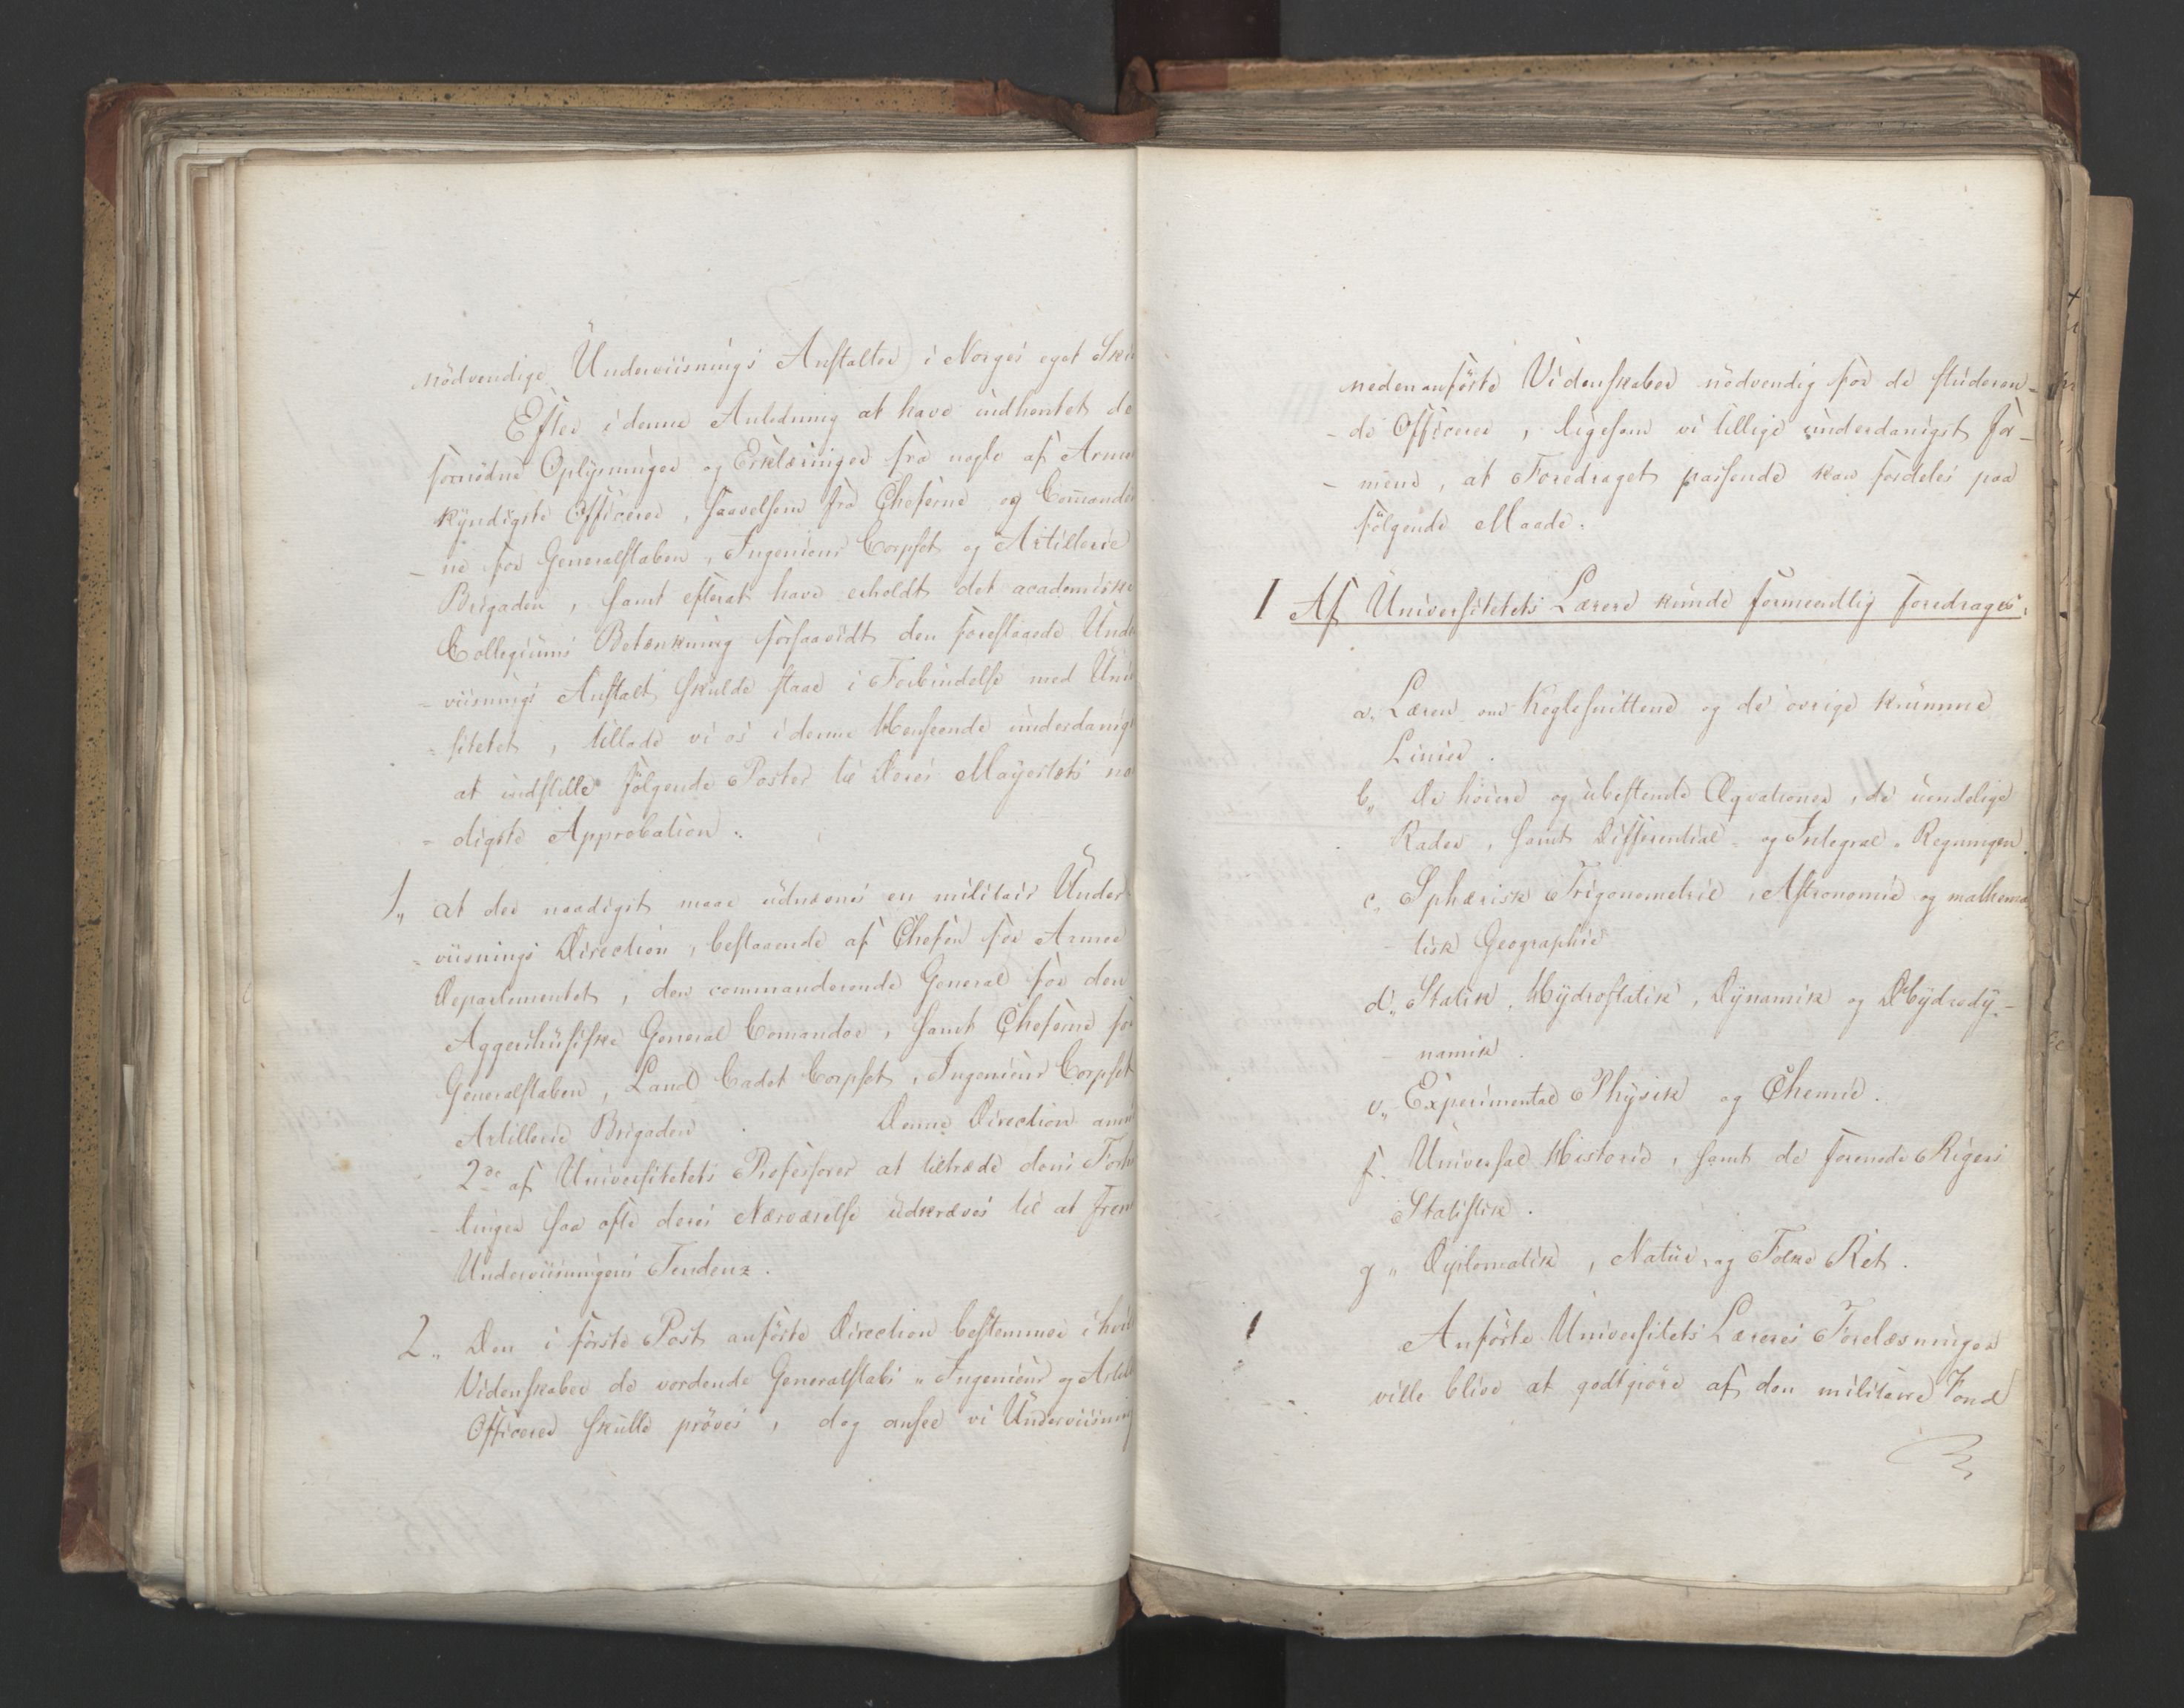 nödvendige Underviisnings Anstalter i Norges eget Skiö
Efter i denne Anledning at have indhentet de
fornödne Oplysninger og Erklæringer fra nogle af Arme
kyndigste Officerer, saavelsom fra Cheferne og Com̄ande
- ne for Generalstaben, Ingenieur Corpset og Artillerie
Brigaden, samt efterat have erholdt det academiske
Collegiums Betænkning forsaavidt den foreslaaede Unde
- viisnings Anstalt skulde staae i Forbindelse med Univ
- sitetet, tillade vi os i denne Henseende underdanigst
at indstille følgende Poster til Deres Majestæts naa
- digste Approbation.
1„ at der naadigst maae udnævnes en militair Under
- viisnings Direction, bestaaende af Chefen for Armee
Departementet, den commanderende General for den
Aggershusiske General Comandoe, samt Cheferne for
Generalstaben, Land Cadet Corpset, Ingenieur Corpset
Artillerie Brigaden. Denne Direction anm
2de af Universitetets Professorer at tiltræde dens Forh
- linger saa ofte deres Nærværelse udkræves til at frem
Underviisningens Tendenz.
2„ Den i förste Post anförte Direction bestemmer i hvil
Videnskaber de vordende Generalstabs „ Ingenieur og Artill
Officerer skulle prøves, dog ansee vi Underviisning
nedenanförte Videnskaber nödvendig for de studeren-
- de Officerer, ligesom vi tillige underdanigst for-
- mene, at Foredraget passende kan fordeles paa
fölgende Maade.
I Af Universitetets Lærere kunde formeentlig foredrages,
a. Læren om Keglesnittene og de övrige krumme
Linier.
b„ De höiere og ubestemte Æqvationer, de uendelige
Rader, samt Differential- og Integral-Regningen.
c„ Sphærisk Trigonometrie, Astronomie og mathema
- tisk Geographie
d„ Statik, Hydrostatik, Dynamik og Hydrody-
- namik.
e„ Experimental Physik og Chemie.
f. Universal Historie, samt de forenede Rigers
Statistik.
g„ Diplomatik, Natur, og Folke Ret.
Anförte Universitets Læreres Forelæsninger
ville blive at godtgiöre af den militaire Fond